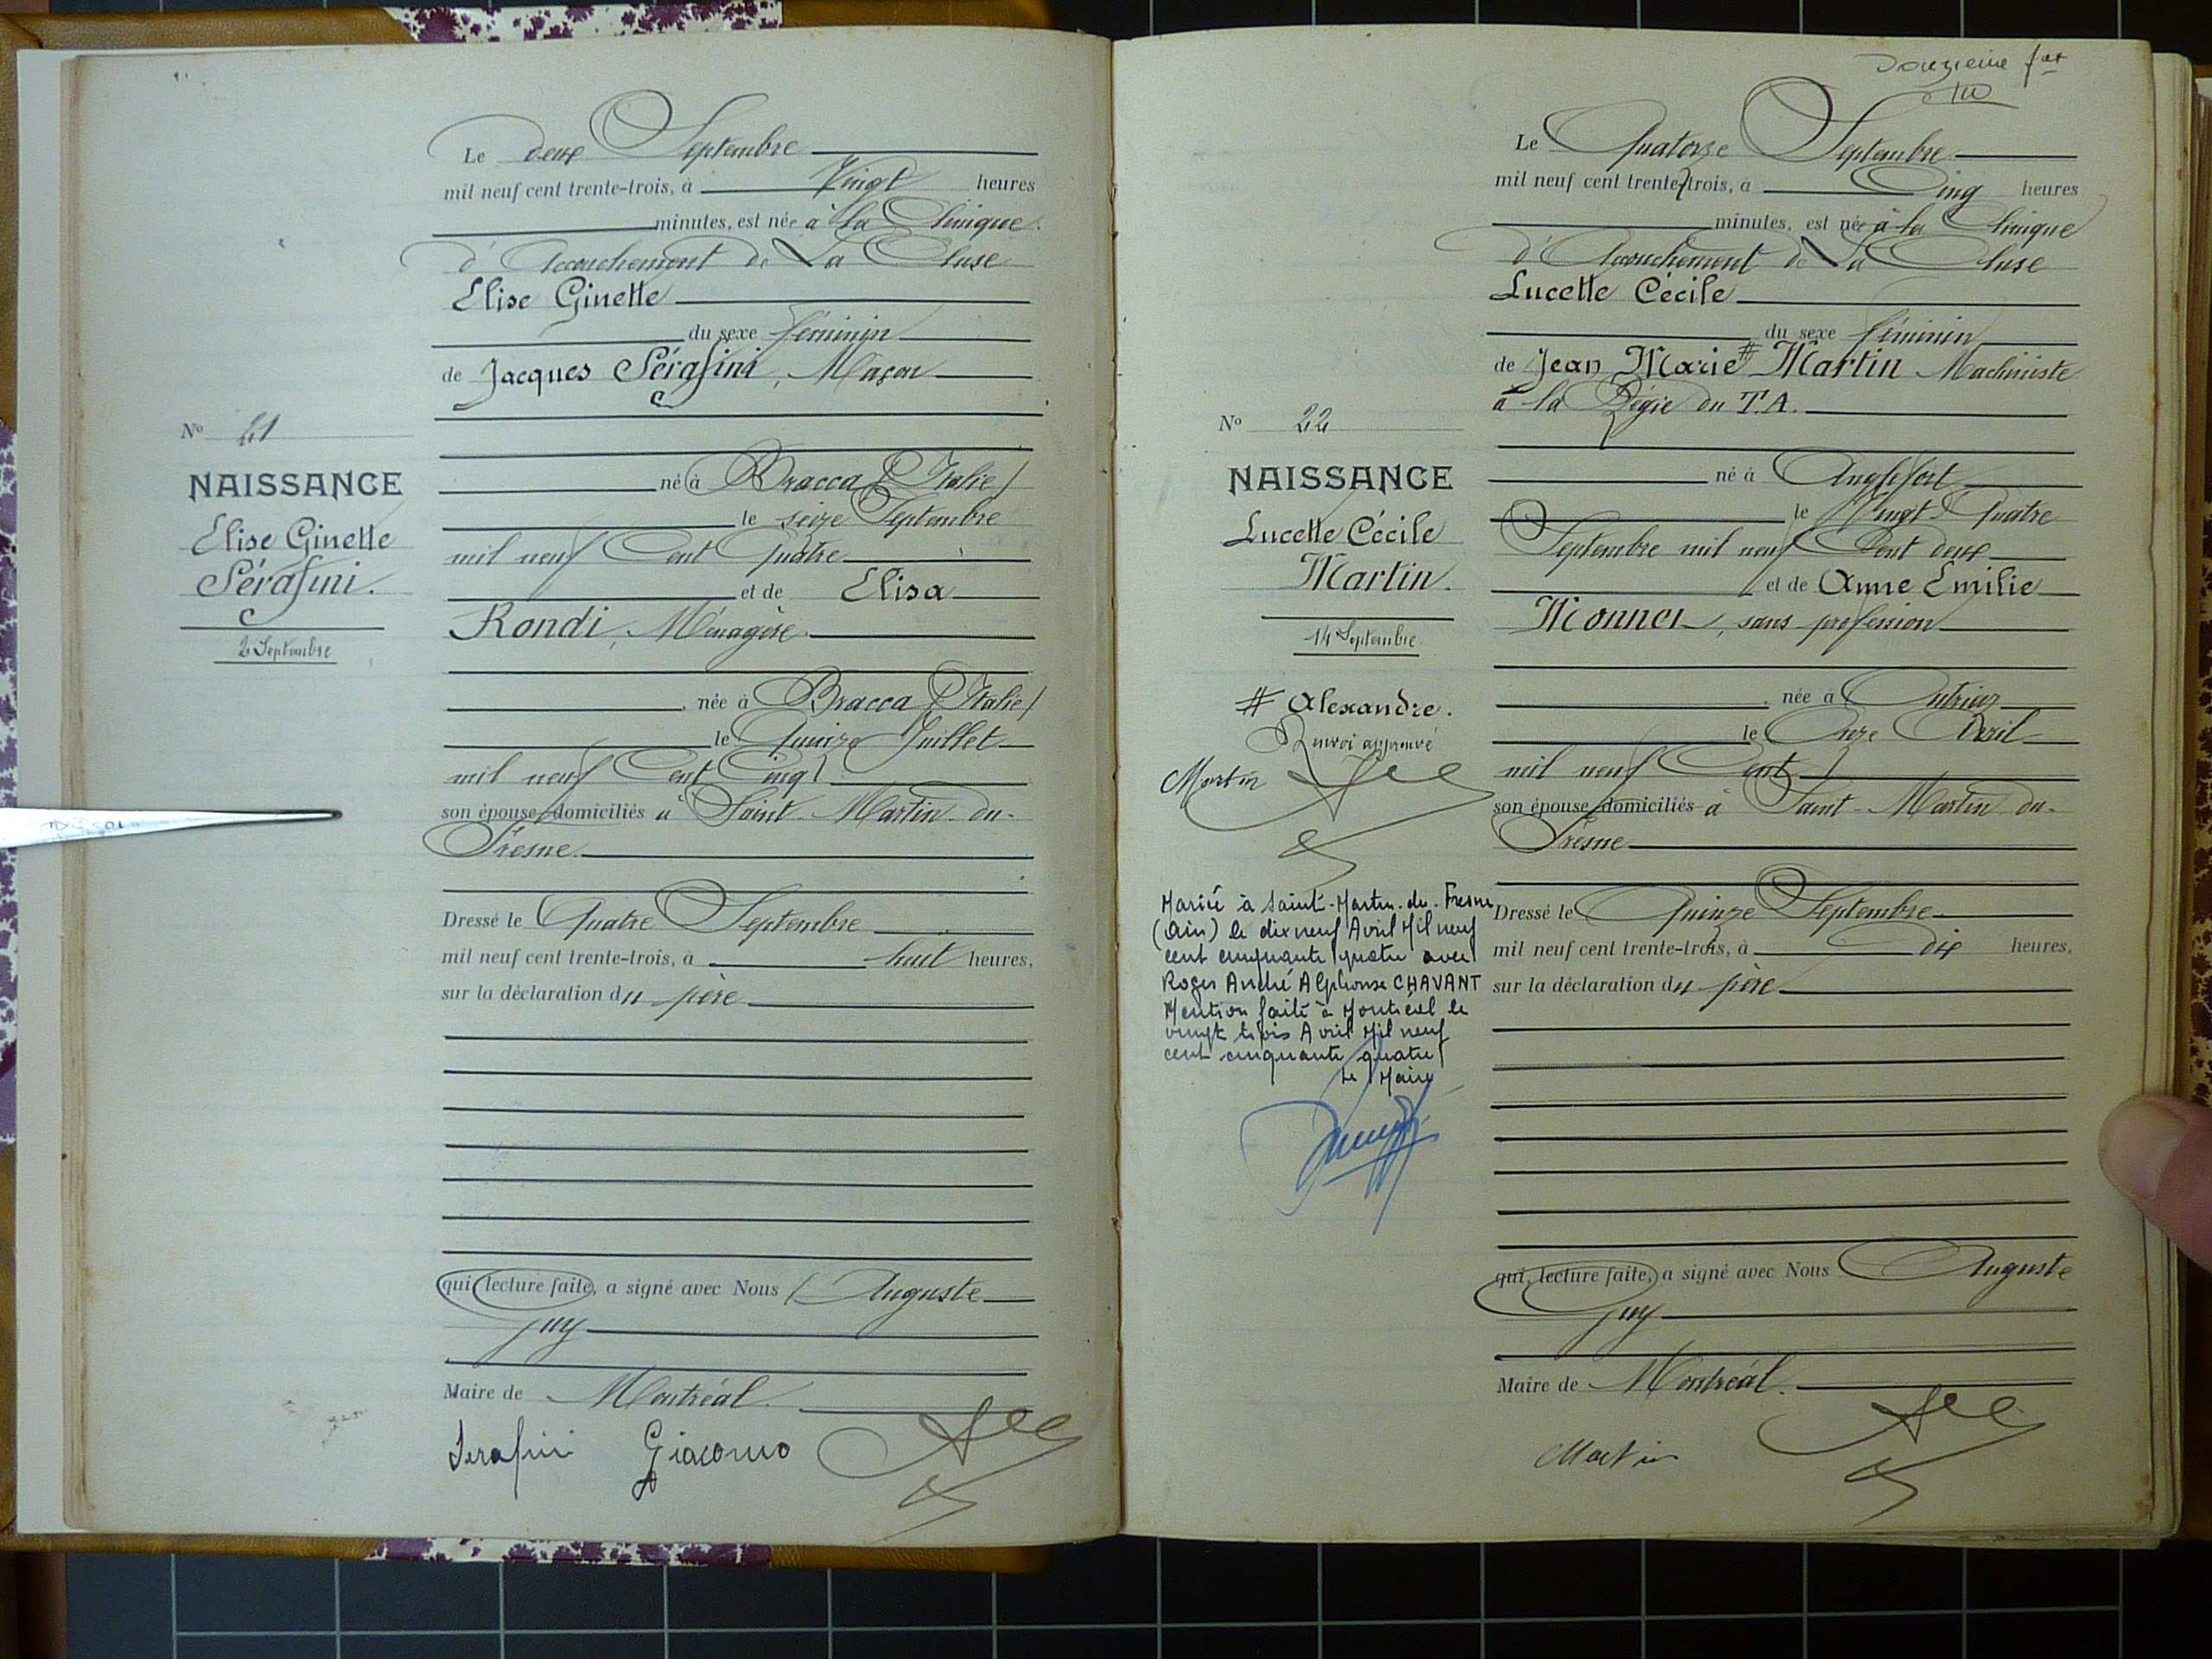 Le deux Septembre
mil neuf cent trente-trois, à Vingt heures
minutes, est née à la Clinique
d'Accouchement de La Cluse
Elise Ginette
du sexe féminin
de Jacques Sérafini, Maçon
N° 21
NAISSANCE
Elise Ginette
Sérafini.
2 Septembre
né à Bracca (Italie)
le seize Septembre
mil neuf Cent Quatre
et de Elisa
Rondi, Ménagère.
née à Bracca (Italie)
le Quinze Juillet
mil neuf Cent Cinq
son épouse domiciliés à Saint-Martin-du-
Frêsne.
Dressé le Quatre Septembre
mil neuf cent trente-trois, à huit heures,
sur la déclaration du père
qui lecture faite, a signé avec Nous Auguste
Juy
Maire de Montréal.
Serafini Giacomo
Douzième
Le Quatorze Septembre
mil neuf cent trente-trois, à Cinq heures
minutes, est née à la Clinique
d'Accouchement de La Cluse
Lucette Cécile
du sexe féminin
de Jean Marie # Martin Machiniste
à la Régie du T.A.
N° 22
NAISSANCE
Lucette Cécile
Martin.
14 Septembre
# Alexandre.
Renvoi approuvé
Martin
Mariée à Saint-Martin-du-Fresne
(Ain) le dix neuf Avril Mil neuf
cent cinquante quatre avec
Roger André Alphonse CHAVANT
Mention faite à Montréal le
vingt trois Avril Mil neuf
cent cinquante quatre
Le Maire
né à Anglefort
le Vingt Quatre
Septembre mil neuf Cent deux
et de Anne Emilie
Monnet, sans profession
née à Outriaz
le Onze Avril
mil neuf Cent
son épouse domiciliés à Saint-Martin du-
Frêsne
Dressé le Quinze Septembre
mil neuf cent trente-trois, à dix heures,
sur la déclaration du père
qui, lecture faite, a signé avec Nous Auguste
Juy
Maire de Montréal.
Martin